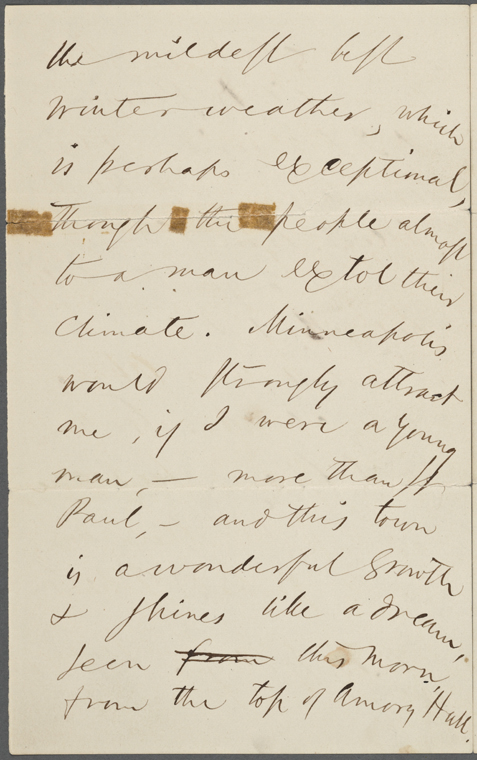 the mildest best
winter weather, which
is perhaps exceptional,
though the people almost
to a man extol their
climate. Minneapolis
would strongly attract
me, if I were a young
man, — more than St
Paul, — and this town
is a wonderful growth
& shines like a dream,
seen from this morn,
from the top of Amory Hall.